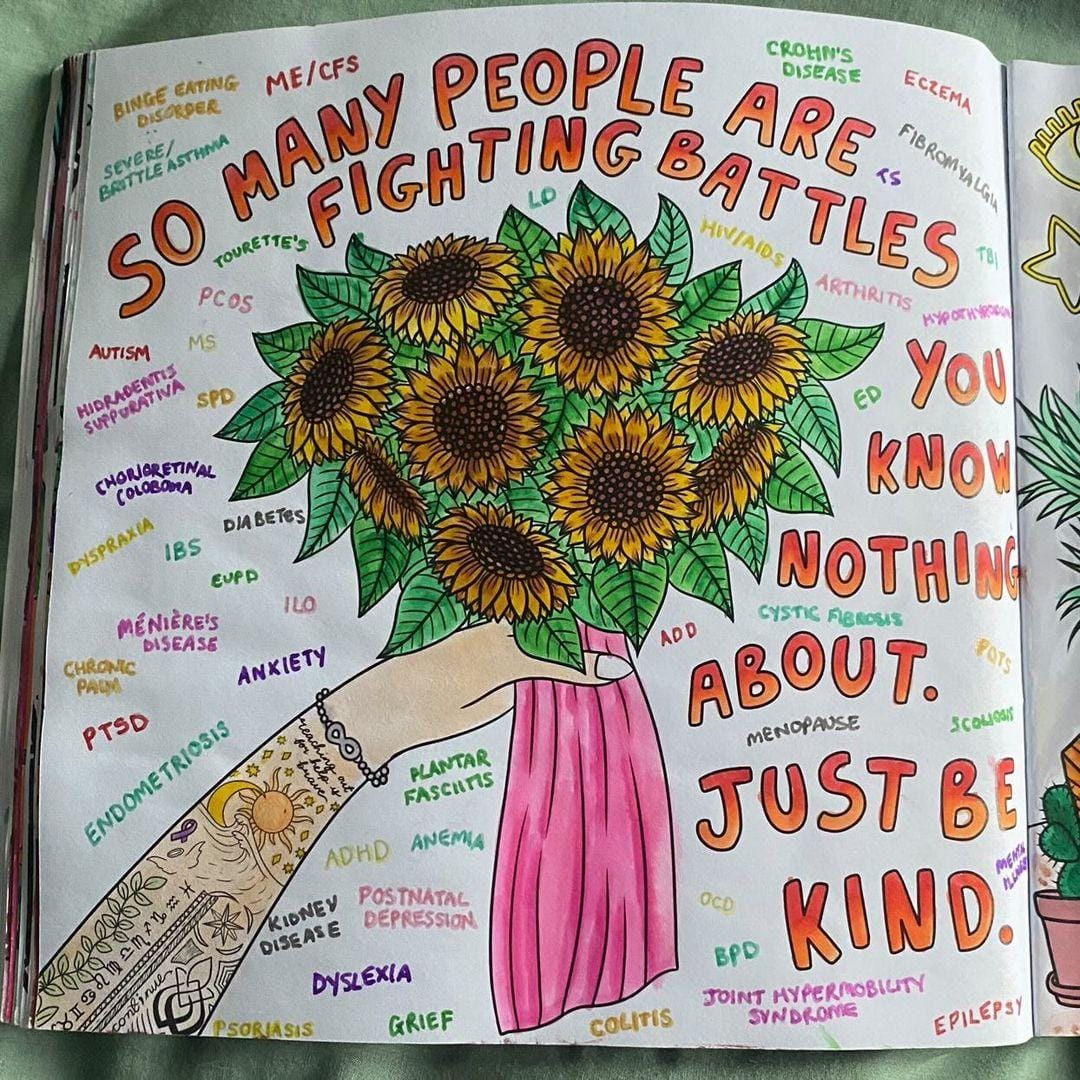 SO MANY PEOPLE ARE
FIGHTING BATTLES
YOU
KNOW
NOTHING
ABOUT.
JUST BE
KIND.
BINGE EATING
DISORDER
ME/CFS
CROHN'S
DISEASE
ECZEMA
SEVERE/
BRITTLE ASTHMA
FIBROMYALGIA
TS
LD
TOURETTE'S
HIV/AIDS
TBI
PCOS
ARTHRITIS
AUTISM
MS
HIDRADENTIS
SUPPURATIVA
SPD
ED
CHORIORETINAL
COLOBOMA
DIABETES
DYSPRAXIA
IBS
EUPD
ILO
CYSTIC FIBROSIS
MÉNIÈRE'S
DISEASE
ADD
POTS
CHRONIC
PAIN
ANXIETY
PTSD
MENOPAUSE
SCOLIOSIS
ENDOMETRIOSIS
reaching out
for help is
brave
PLANTAR
FASCIITIS
ADHD
ANEMIA
MENTAL
ILLNESS
KIDNEY
DISEASE
POSTNATAL
DEPRESSION
OCD
BPD
DYSLEXIA
JOINT HYPERMOBILITY
SYNDROME
continue
PSORIASIS
GRIEF
COLITIS
EPILEPSY